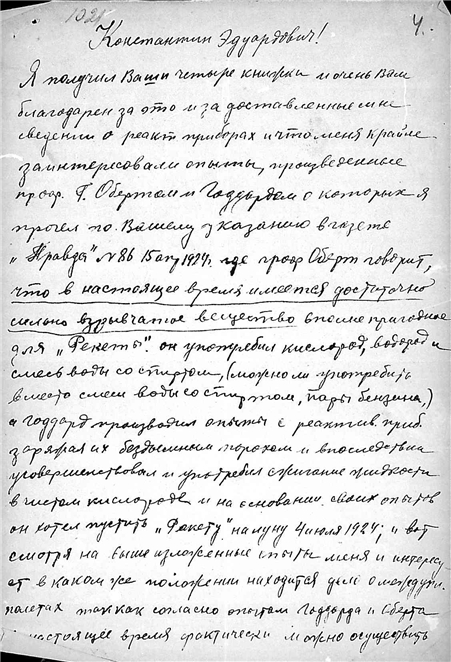 1021
4.
Константин Эдуардович!
Я получил Ваши четыре книжки и очень Вам
благодарен за это и за доставленные мне
сведении о реакт. приборах и что меня крайне
заинтересовали опыты, произведенные
проф. Г. Обертом и Годдардом о которых я
прочел по Вашему указанию в газете
„Правда" №86 15 апр 1924г. где проф Оберт говорит,
что в настоящее время имеется достаточно
сильно взрывчатое вещество вполне пригодное
для „Рекеты". он употребил кислород, водород и
смесь воды со спиртом, (можно ли употребить
вместо смеси воды со спиртом, пары бензина,)
а годдард производил опыты с реактив. приб.
заряжая их бездымным порохом и впоследствии
усовершенствовал и употребил сжигание жидкости
в чистом кислороде и на основании своих опытов
он хотел пустить „Факету" на луну 4 июля 1924; и вот
смотря на выше изложенные опыты меня и интересу-
ет в каком же положении находится дело о междупл.
полетах так как согласно опытам Годдарда и Оберта
настоящее время фактически можно осуществить